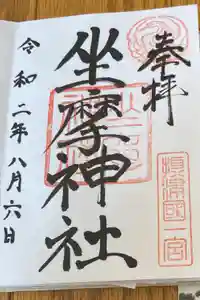 奉拝
摂津國一宮
坐摩神社
令和二年八月六日